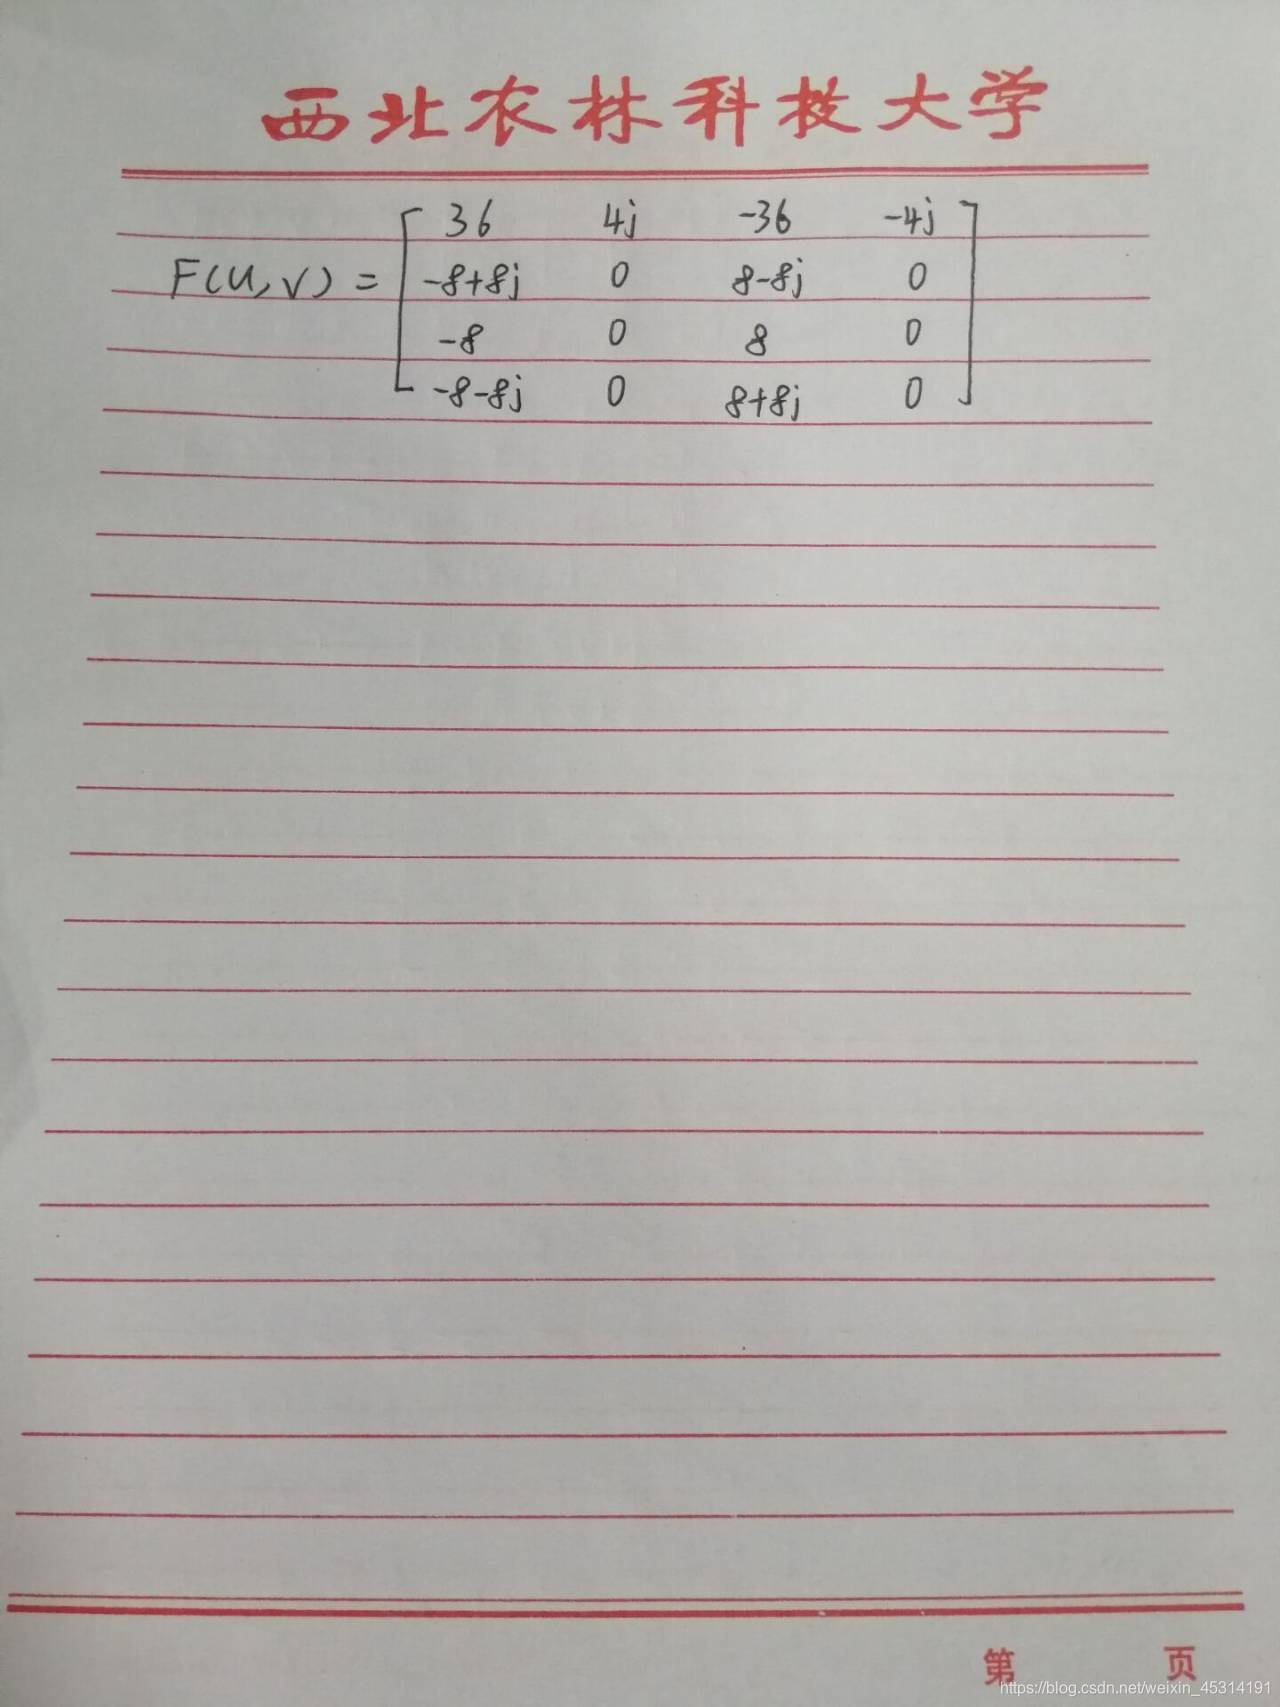 西北农林科技大学
36 4j -36 -4j
F(u,v) = -8+8j 0 8-8j 0
-8 0 8 0
-8-8j 0 8+8j 0
第 页
https://blog.csdn.net/weixin_45314191